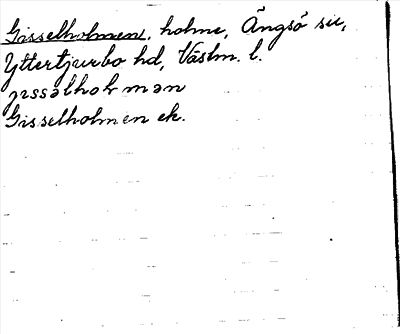 Gisselholmen, holme, Ängsö sn,
Yttertjurbo hd, Västm. l.
jissəlhol mən
Gisselholmen ek.